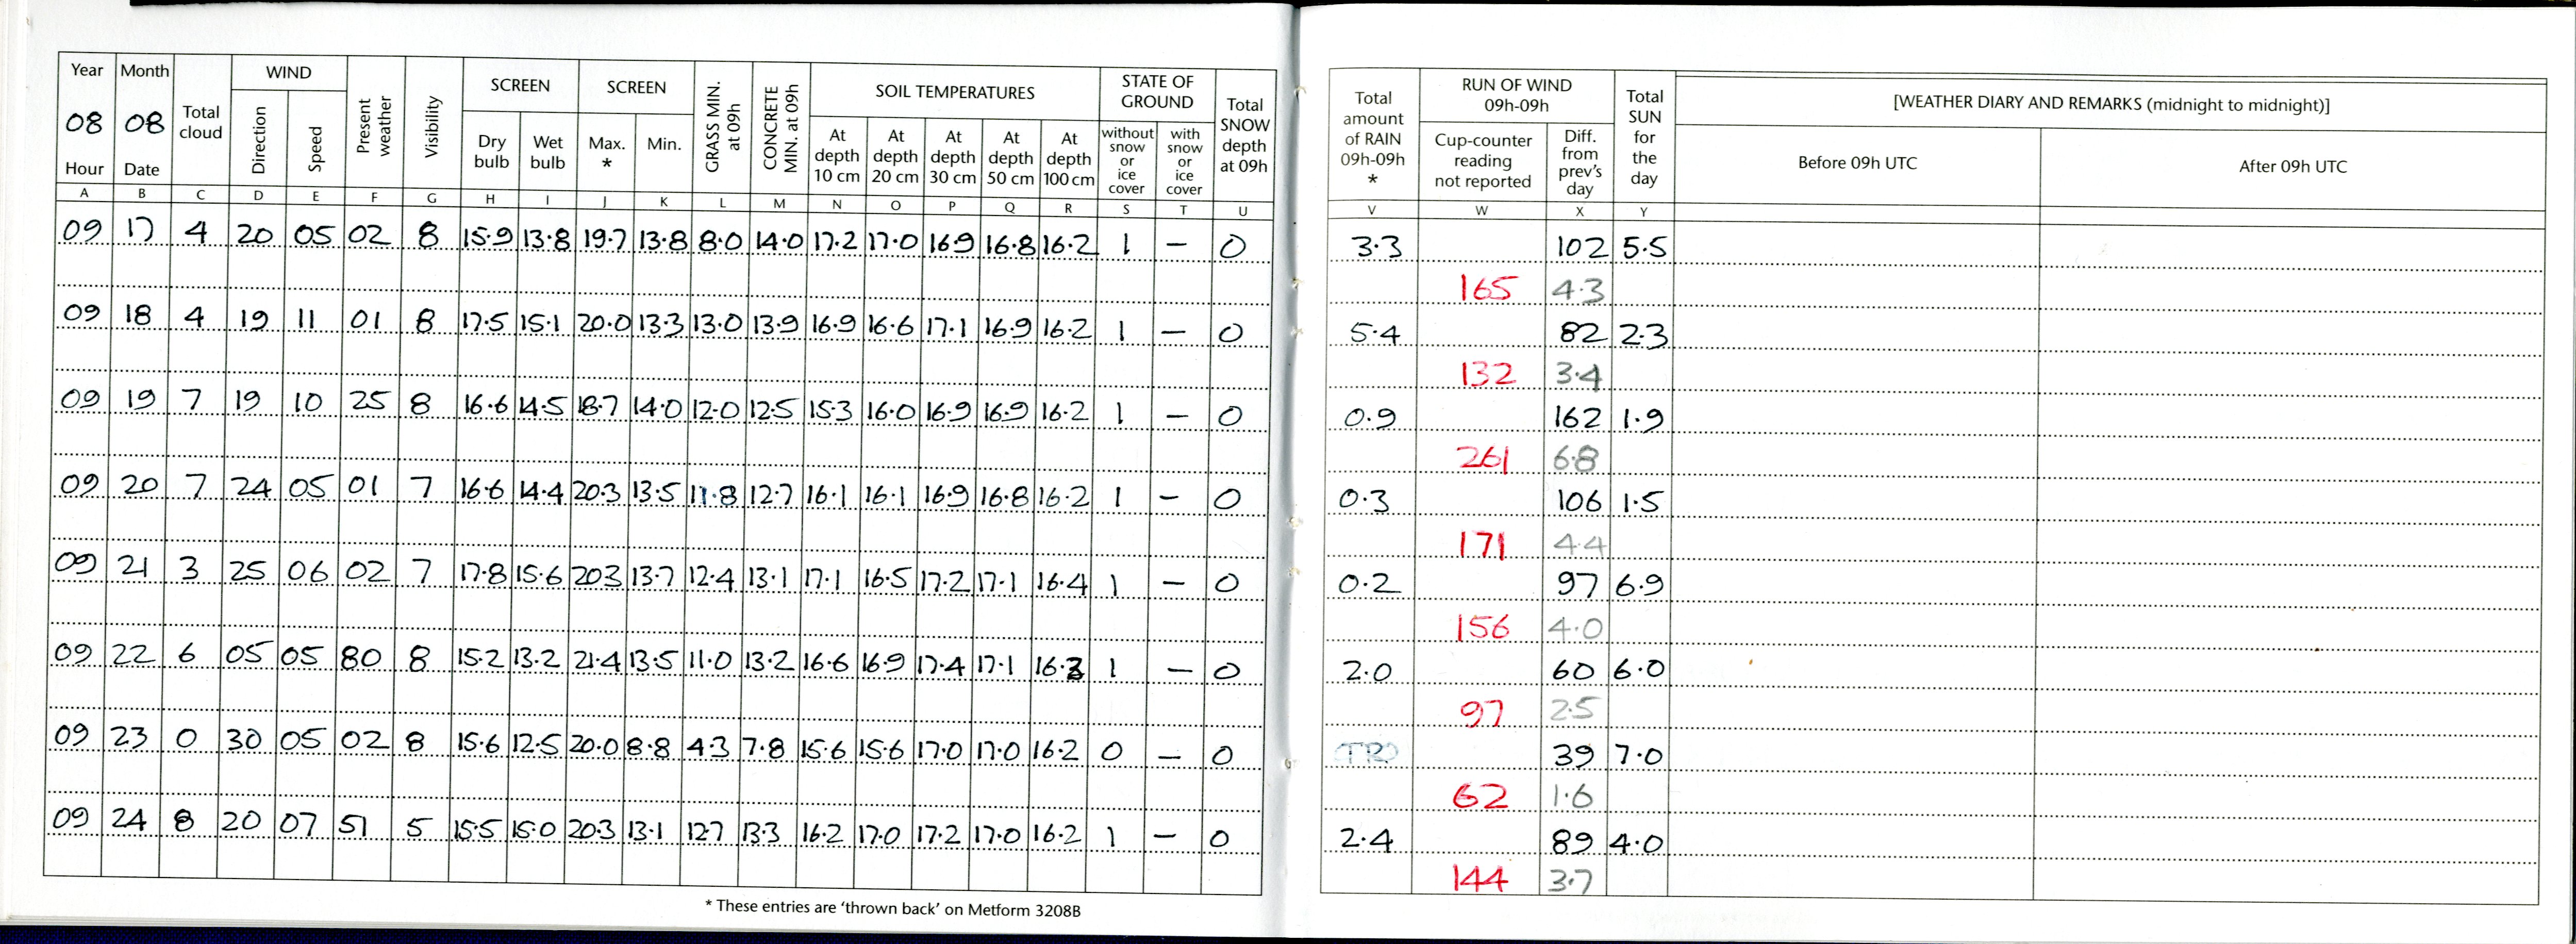 Year Month Total cloud WIND Present weather Visibility SCREEN SCREEN GRASS MIN. at 09h CONCRETE MIN. at 09h SOIL TEMPERATURES STATE OF GROUND Total SNOW depth at 09h
08 08 Direction Speed Dry bulb Wet bulb Max. * Min. At depth 10 cm At depth 20 cm At depth 30 cm At depth 50 cm At depth 100 cm without snow or ice cover with snow or ice cover
Hour Date
A B C D E F G H I J K L M N O P Q R S T U
09 17 4 20 05 02 8 15.9 13.8 19.7 13.8 8.0 14.0 17.2 17.0 16.9 16.8 16.2 1 – 0
09 18 4 19 11 01 8 17.5 15.1 20.0 13.3 13.0 13.9 16.9 16.6 17.1 16.9 16.2 1 – 0
09 19 7 19 10 25 8 16.6 14.5 18.7 14.0 12.0 12.5 15.3 16.0 16.9 16.9 16.2 1 – 0
09 20 7 24 05 01 7 16.6 14.4 20.3 13.5 11.8 12.7 16.1 16.1 16.9 16.8 16.2 1 – 0
09 21 3 25 06 02 7 17.8 15.6 20.3 13.7 12.4 13.1 17.1 16.5 17.2 17.1 16.4 1 – 0
09 22 6 05 05 80 8 15.2 13.2 21.4 13.5 11.0 13.2 16.6 16.9 17.4 17.1 16.3 1 – 0
09 23 0 30 05 02 8 15.6 12.5 20.0 8.8 4.3 7.8 15.6 15.6 17.0 17.0 16.2 0 – 0
09 24 8 20 07 51 5 15.5 15.0 20.3 13.1 12.7 13.3 16.2 17.0 17.2 17.0 16.2 1 – 0
* These entries are ‘thrown back’ on Metform 3208B
Total amount of RAIN 09h-09h * RUN OF WIND 09h-09h Total SUN for the day [WEATHER DIARY AND REMARKS (midnight to midnight)]
Cup-counter reading not reported Diff. from prev's day Before 09h UTC After 09h UTC
V W X Y
3.3 102 5.5
165 4.3
5.4 82 2.3
132 3.4
0.9 162 1.9
261 6.8
0.3 106 1.5
171 4.4
0.2 97 6.9
156 4.0
2.0 60 6.0
97 2.5
(TR) 39 7.0
62 1.6
2.4 89 4.0
144 3.7